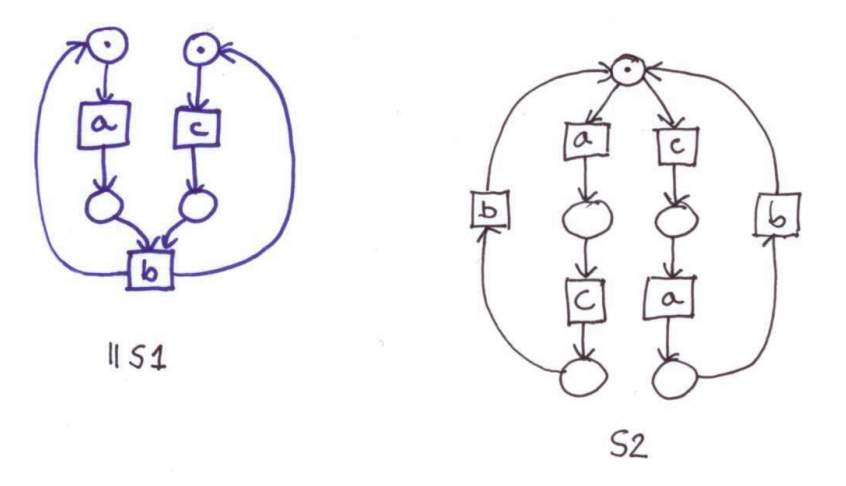 a c
b
|| S1
a c
b b
c a
S2